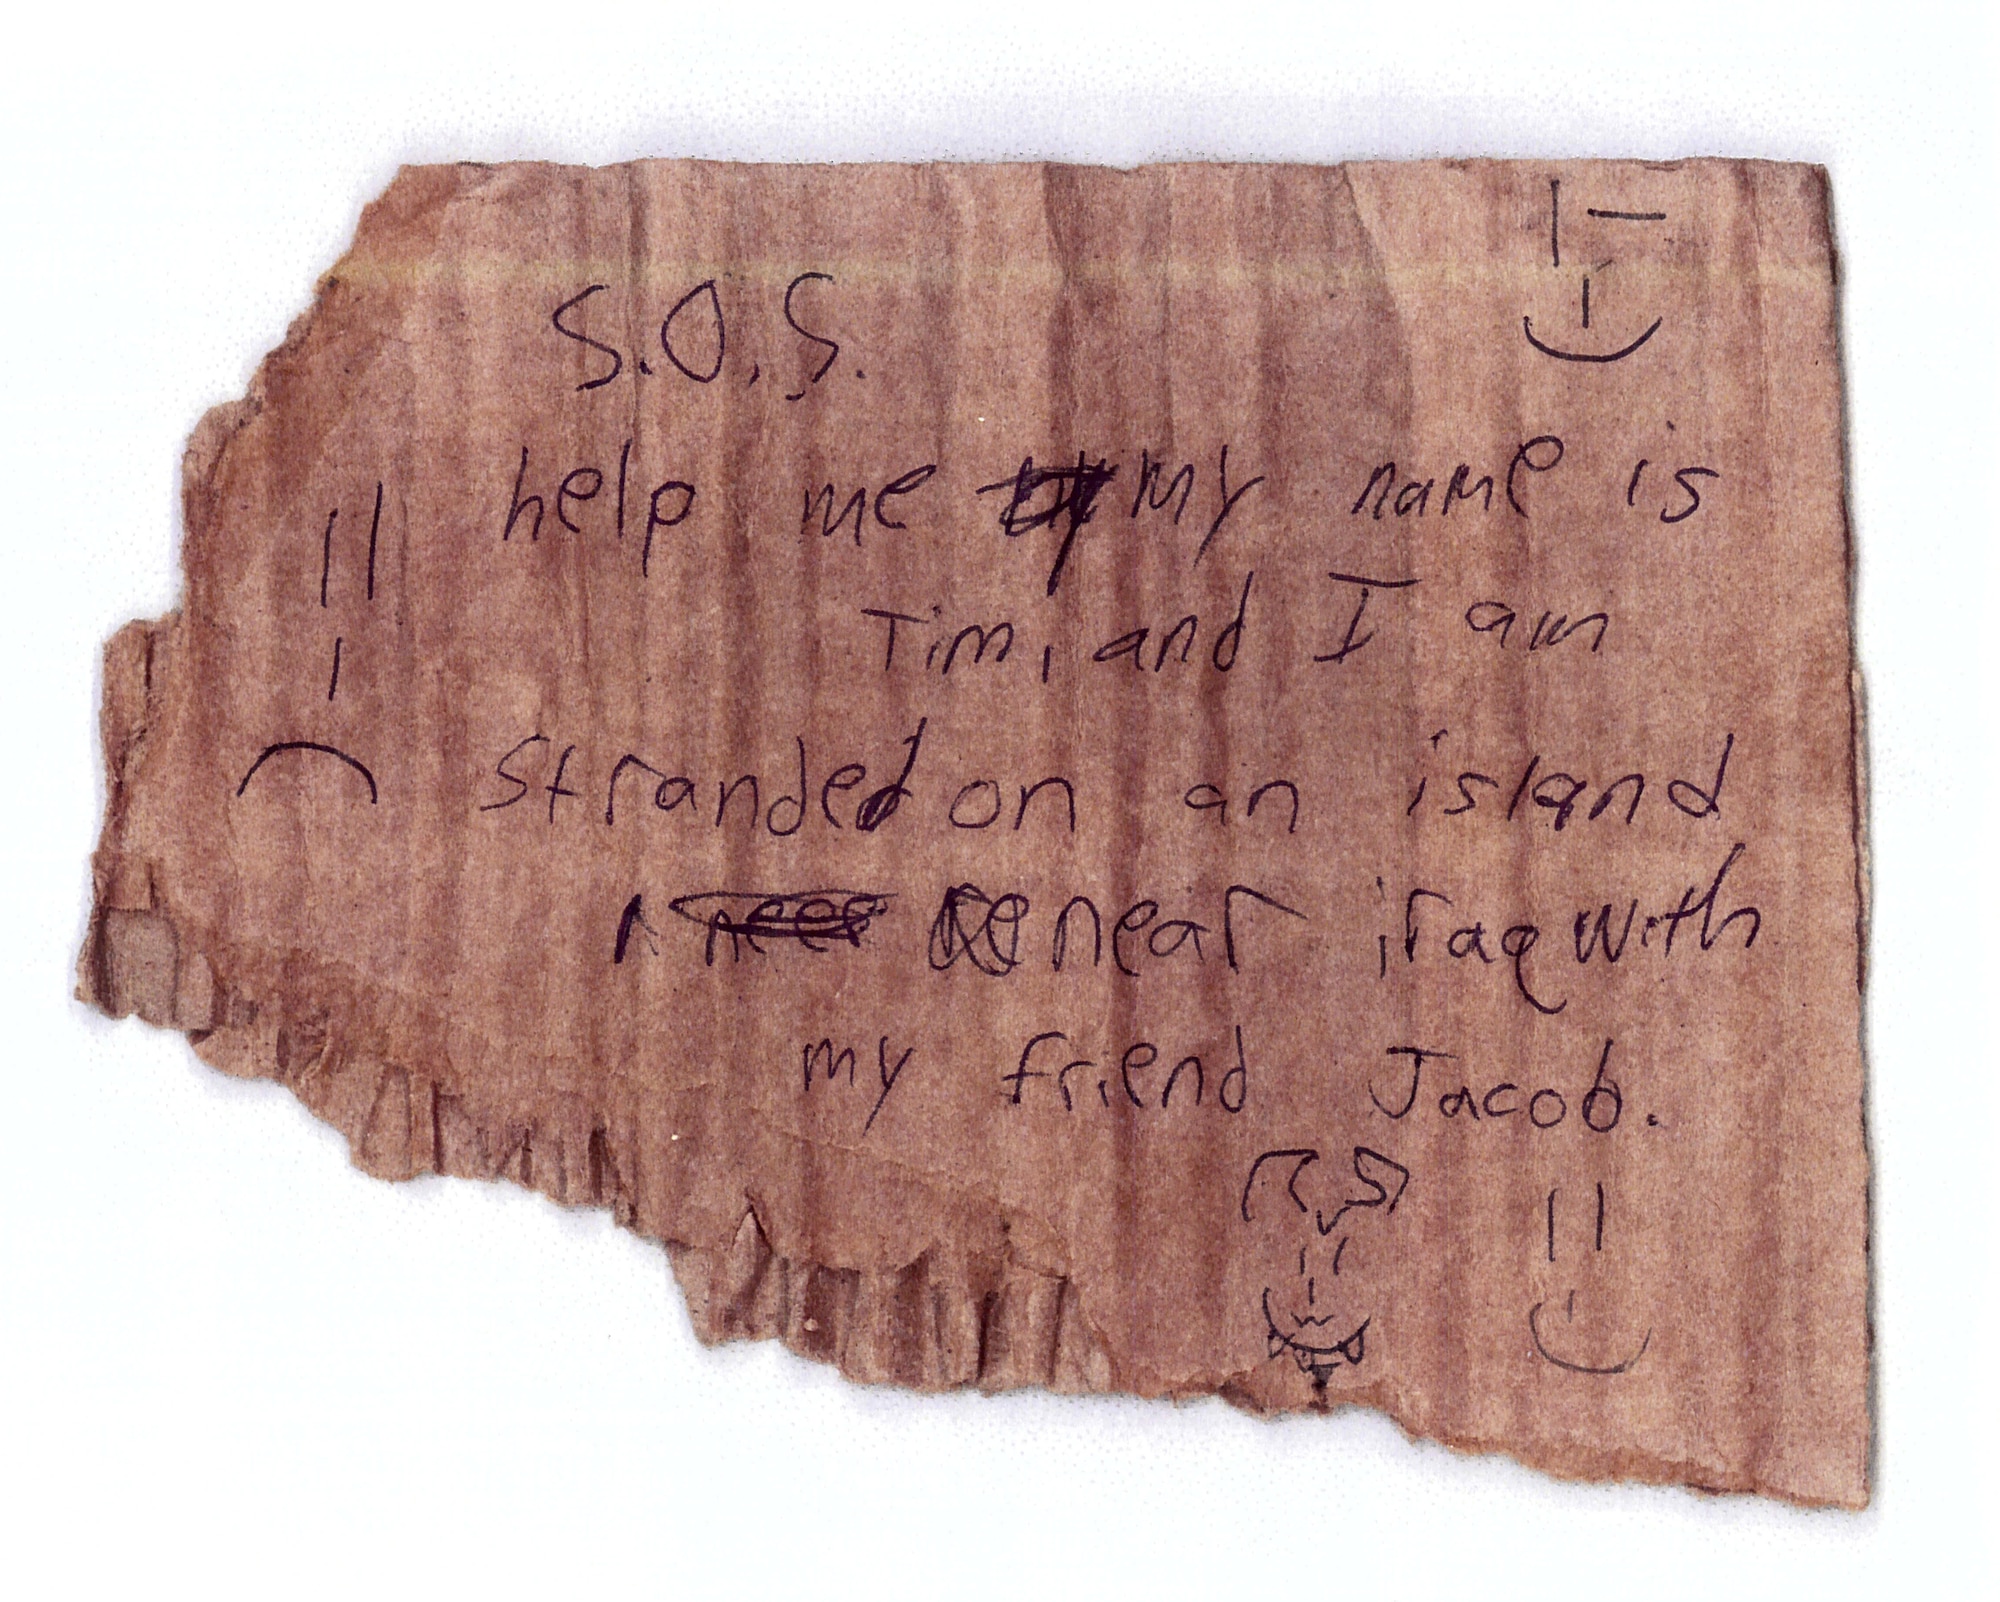 S.O.S.
help me my name is
Tim, and I am
stranded on an island
near iraq with
my friend Jacob.